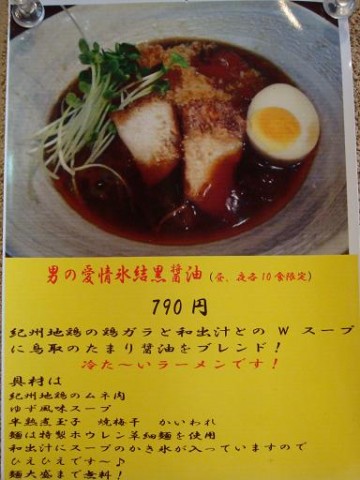 男の愛情氷結黒醤油(昼、夜各10食限定)
790円
紀州地鶏の鶏ガラと和出汁とのWスープ
に鳥取のたまり醤油をブレンド!
冷た~いラーメンです!
具材は
紀州地鶏のムネ肉
ゆず風味スープ
半熟煮玉子 焼梅干 かいわれ
麺は特製ホウレン草細麺を使用
和出汁にスープのかき氷が入っていますので
ひえひえです~♪
麺大盛まで無料!